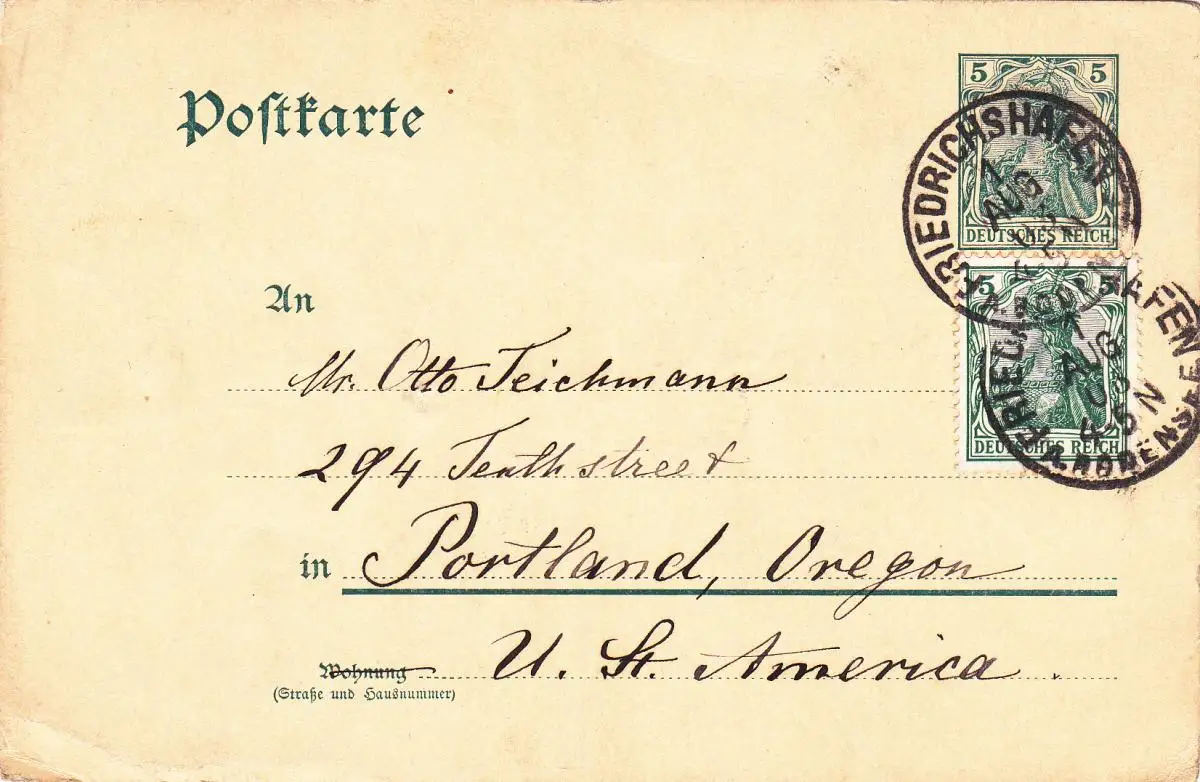 Postkarte
5 5
DEUTSCHES REICH
FRIEDRICHSHAFEN
1
AUG
5 5
DEUTSCHES REICH
AUG
4-5 N
An
Mr. Otto Teichmann
294 Tenth street
in Portland, Oregon
U. St. America.
Wohnung
(Straße und Hausnummer)